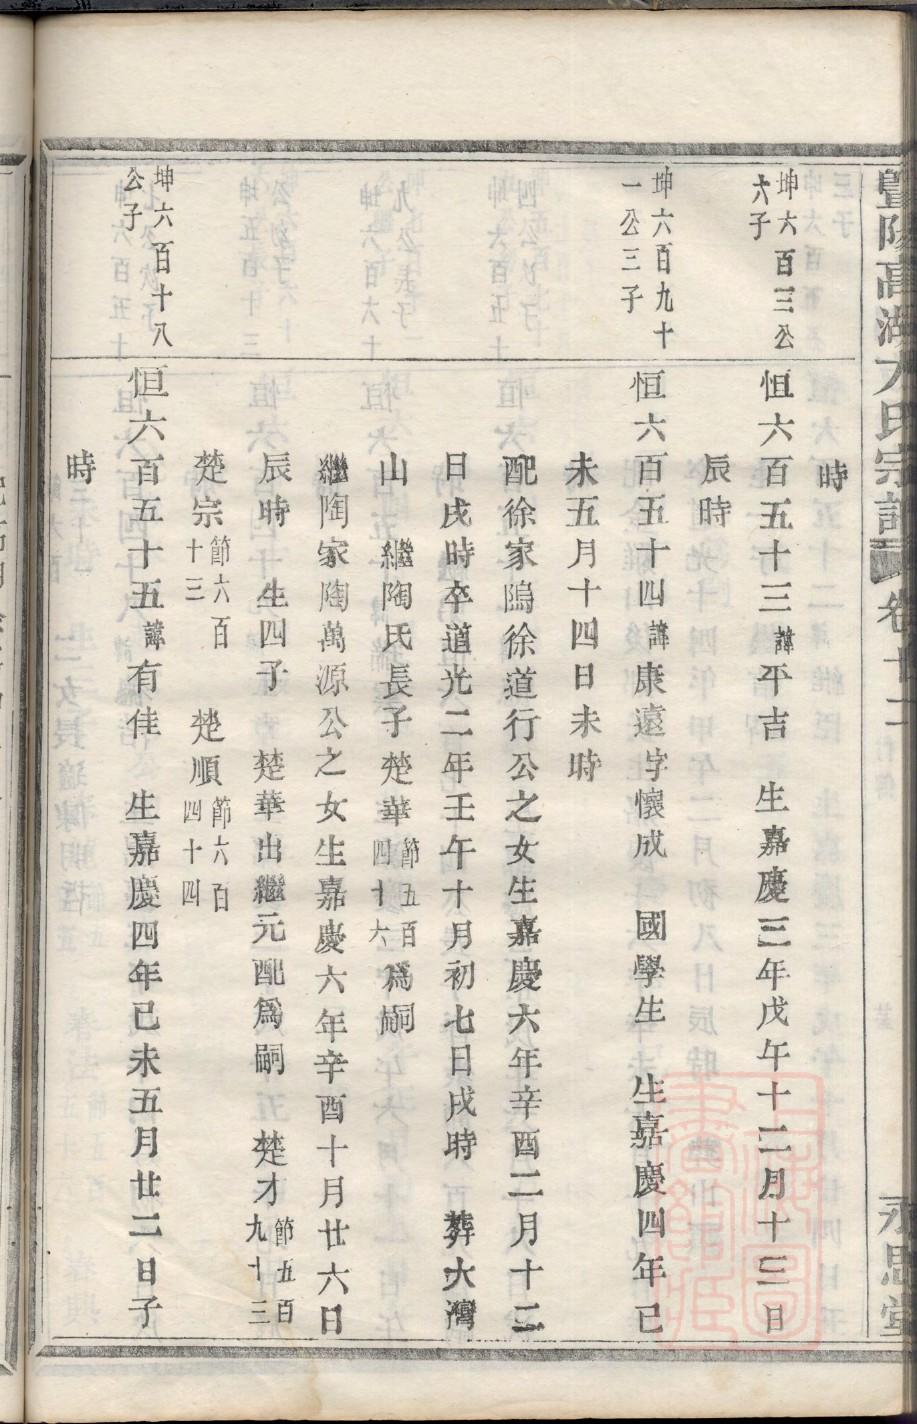 暨陽高湖方氏宗譜 卷廿二 永思堂
時
坤六百三公六子
恒六百五十三諱平吉 生嘉慶三年戊午十二月十三日
辰時
坤六百九十一公三子
恒六百五十四諱康遠字懷成 國學生 生嘉慶四年已
未五月十四日未時
配徐家隝徐道行公之女生嘉慶六年辛酉二月十二
日戌時卒道光二年壬午十月初七日戌時 葬大灣
山 繼陶氏長子楚華節五百四十六爲嗣
繼陶家陶萬源公之女生嘉慶六年辛酉十月廿六日
辰時 生四子 楚華出繼元配爲嗣 楚才節五百九十三
楚宗節六百十三 楚順節六百四十四
坤六百十八公子
恒六百五十五諱有佳 生嘉慶四年已未五月廿二日子
時